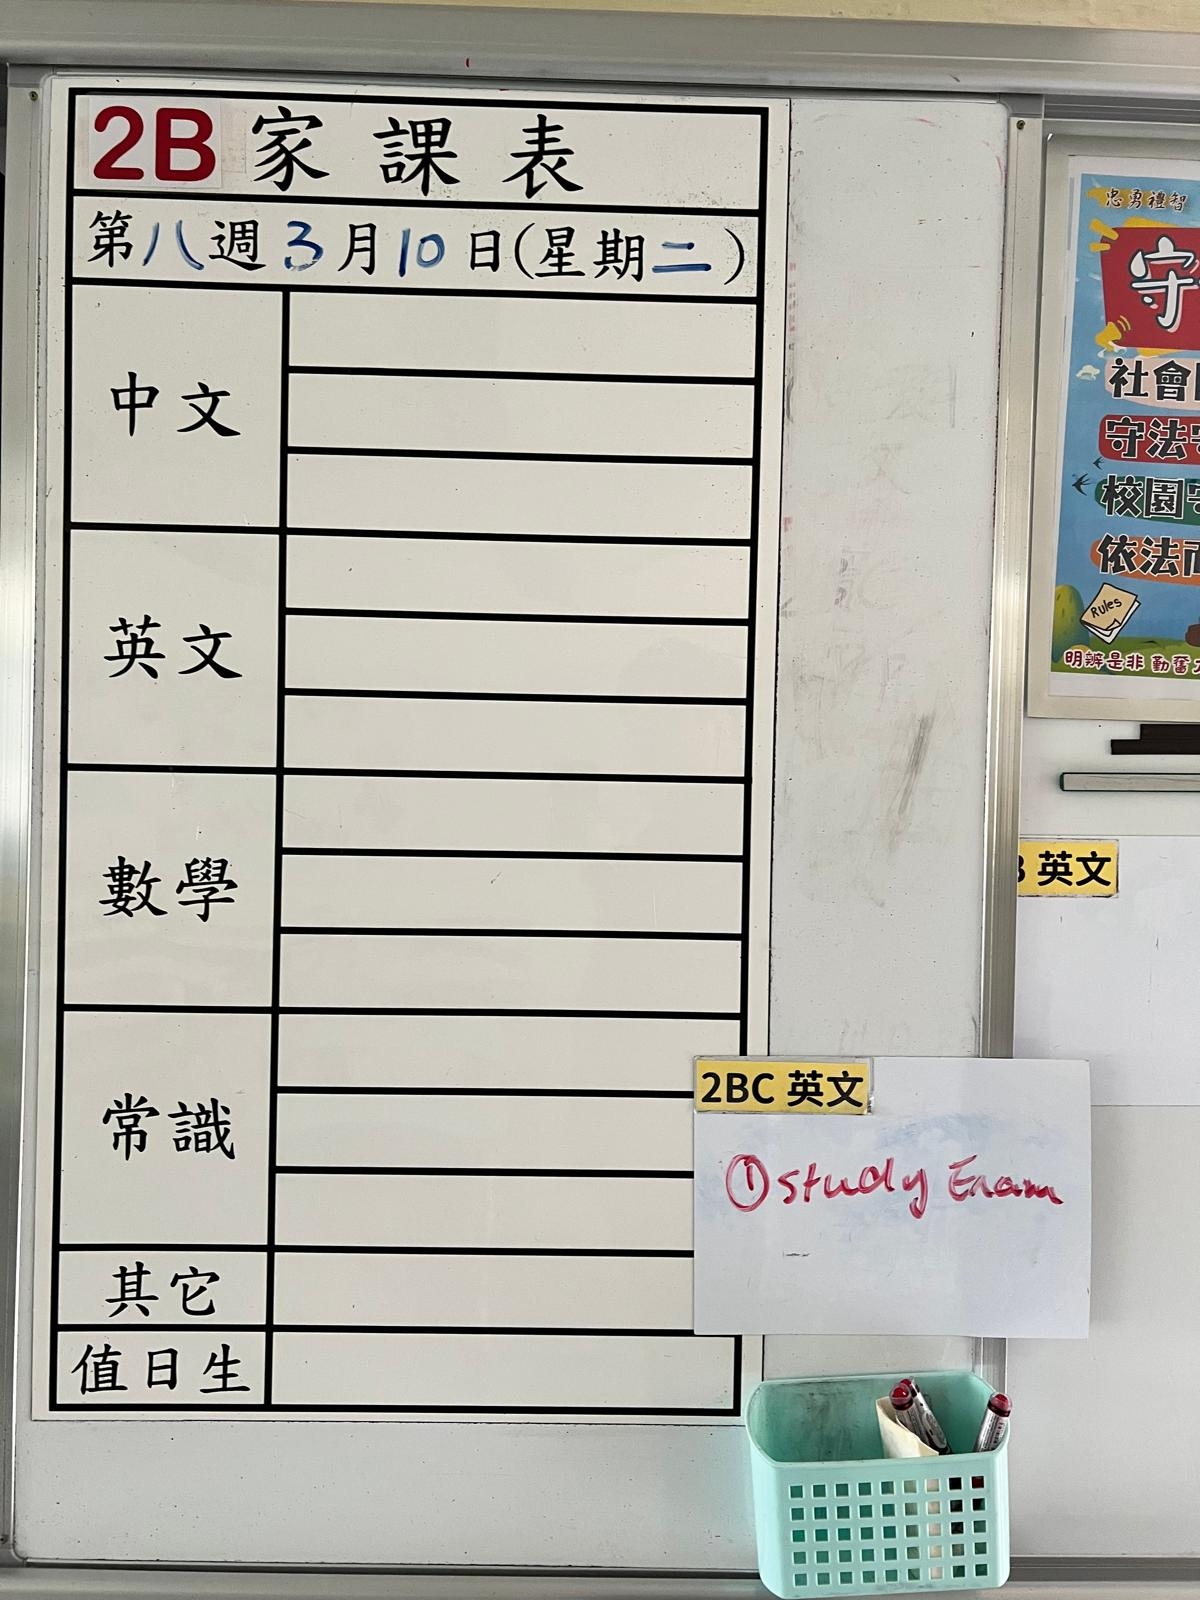 2B 家課表
第八週3月10日(星期二)
中文
英文
數學
常識
其它
值日生
2BC 英文
①study Exam
忠勇禮智
守
社會
守法
校園
依法
Rules
明辨是非 勤奮
英文